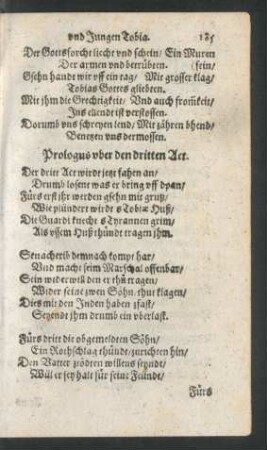 vnd Jungen Tobia. 185
Der Gottsforcht liecht vnd schein/ Ein Muren
Der armen vnd betrübten. (sein/
Gsehn hand wir vff ein tag/ Mit grosser klag/
Tobias Gottes gliebten.
Mit jhm die Grechtigkeit/ Vnd auch fromkeit/
Ins ellende ist verstossen.
Dorumb vns schreyen lend/ Mit zähren bhend/
Benetzen vns dermossen.
Prologus vber den dritten Act.
Der drite Act wirdt jetz fahen an/
Drumb losent was er bring vff
Fürs erst jhr werden gsehn mit
Wie plündert wirdt s Tobiæ Huß/
Die Guardi knecht s Tyrannen grim/
Als vssem Huß thündt tragen jhm.
Senacherib demnach kompt har/
Vnd macht seim Marschal offenbar/
Sein widerwill den er thů tragen/
Wider seine zwen Söhn, thut klagen/
Dies mit den Juden haben
Setzende jhm drumb ein vberlast.
Fürs drit die obgemeldten Söhn/
Ein Rothschlag thündt/ zurichten hin/
Den Vatter zcödten willens seyndt/
Will er sey halt für seine Feindt/
Fürs